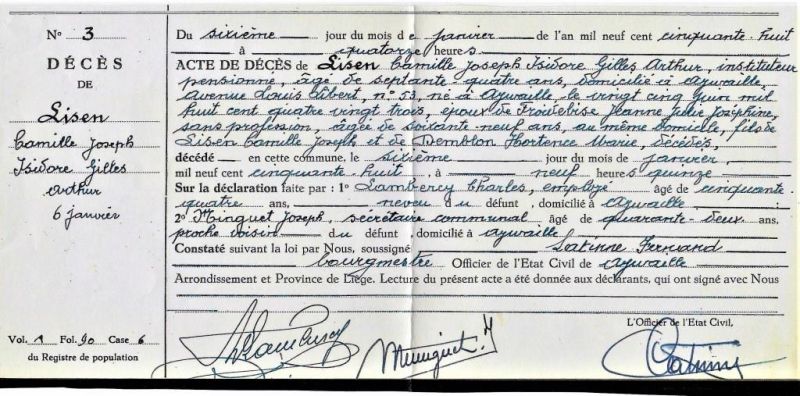 N° 3
DÉCÈS
DE
Lisen
Camille Joseph
Isidore Gilles
Arthur
6 janvier
Vol. 1 Fol. 90 Case 6
du Registre de population
Du sixième jour du mois de janvier de l'an mil neuf cent cinquante-huit
à quatorze heures
ACTE DE DÉCÈS de Lisen Camille Joseph Isidore Gilles Arthur, instituteur
pensionné, âgé de septante-quatre ans, domicilié à Aywaille,
Avenue Louis Libert, n° 53, né à Aywaille, le vingt cinq juin mil
huit cent quatre vingt trois, époux de Froidebise Jeanne Julie Joséphine,
sans profession, âgée de soixante neuf ans, au même domicile, fils de
Lisen Camille Joseph et de Demblon Hortence Marie, décédés,
décédé en cette commune, le sixième jour du mois de janvier,
mil neuf cent cinquante huit à neuf heures quinze
Sur la déclaration faite par : 1° Lambercy Charles, employé âgé de cinquante
quatre ans, neveu du défunt, domicilié à Aywaille
2° Minguet Joseph, secrétaire communal âgé de quarante-deux ans,
proche voisin du défunt domicilié à Aywaille
Constaté suivant la loi par Nous, soussigné Satinne Fernand
bourgmestre Officier de l'Etat Civil de Aywaille
Arrondissement et Province de Liège. Lecture du présent acte a été donnée aux déclarants, qui ont signé avec Nous
L'Officier de l'Etat Civil,